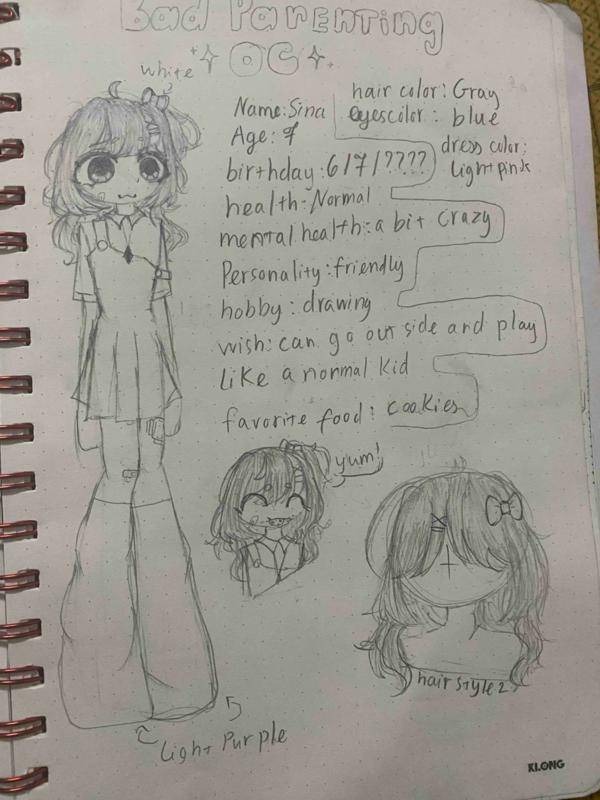 Bad Parenting
OC
white
Name: Sina
hair color: Gray
eyescolor: blue
Age: 9
dress color:
Light pink
birthday: 6/7/????
health: Normal
mental health: a bit crazy
Personality: friendly
hobby: drawing
wish: can go out side and play
Like a normal kid
favorite food: cookies
yum!
hair style 2
Light Purple
KLONG